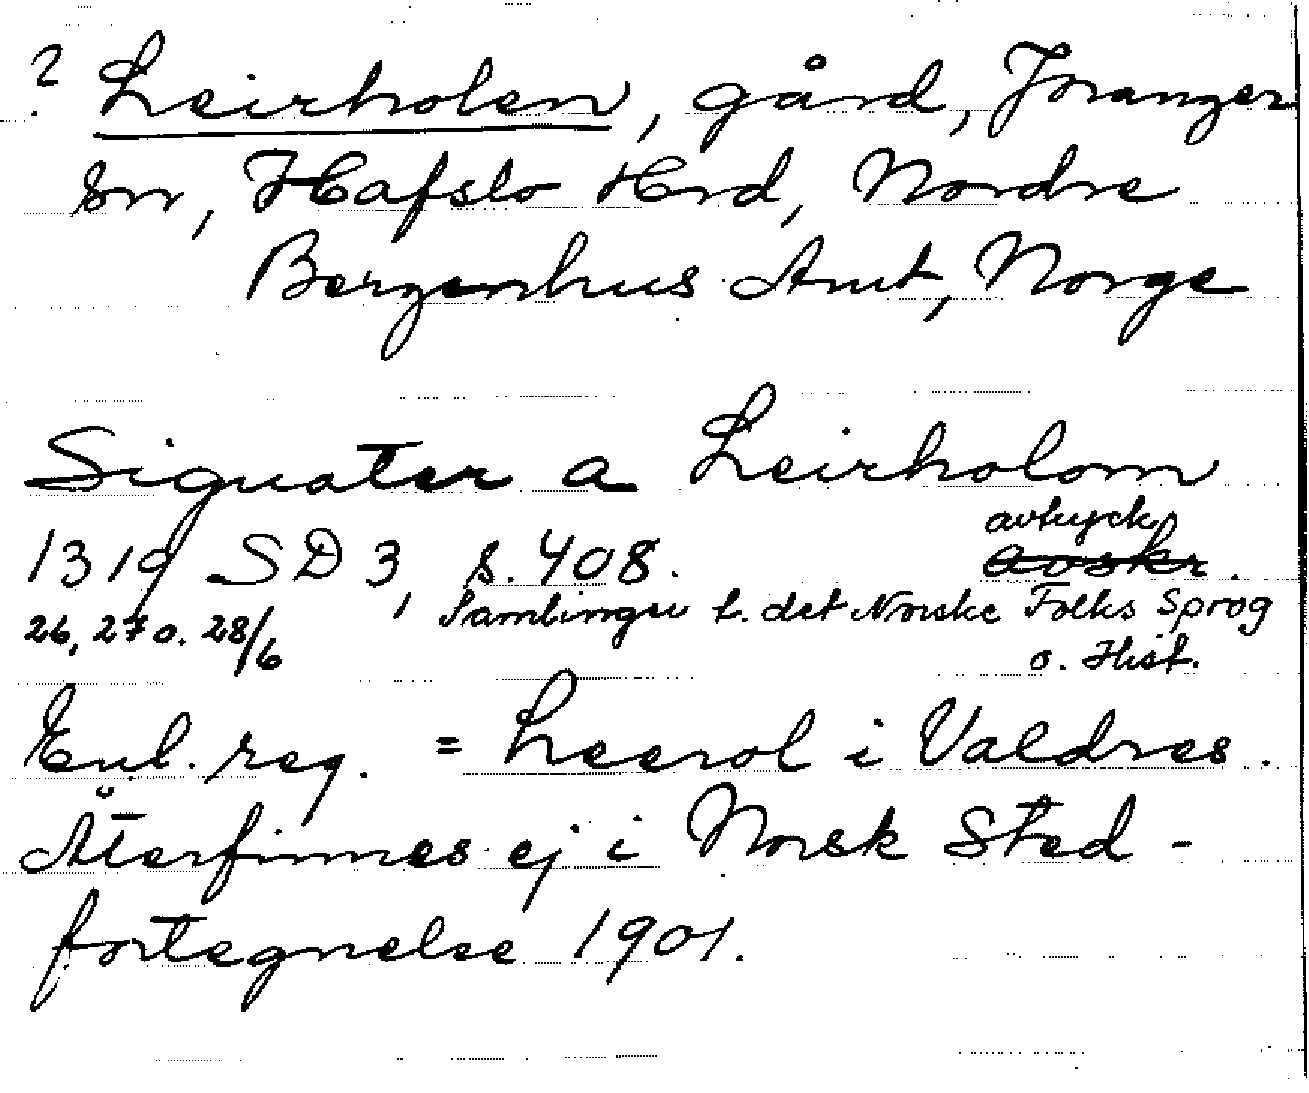 ? Leirholen, gård, Joranger
sn, Hafslo Hrd, Nordre
Bergenhus Amt, Norge
Siguater a Leirholom
1319 SD 3, s. 408. avtryck
26, 27 o. 28/6 Samlinger t. det Norske Folks Sprog
o. Hist.
Enl. reg. = Leerol i Valdres.
Återfinnes ej i Norsk Sted-
fortegnelse 1901.